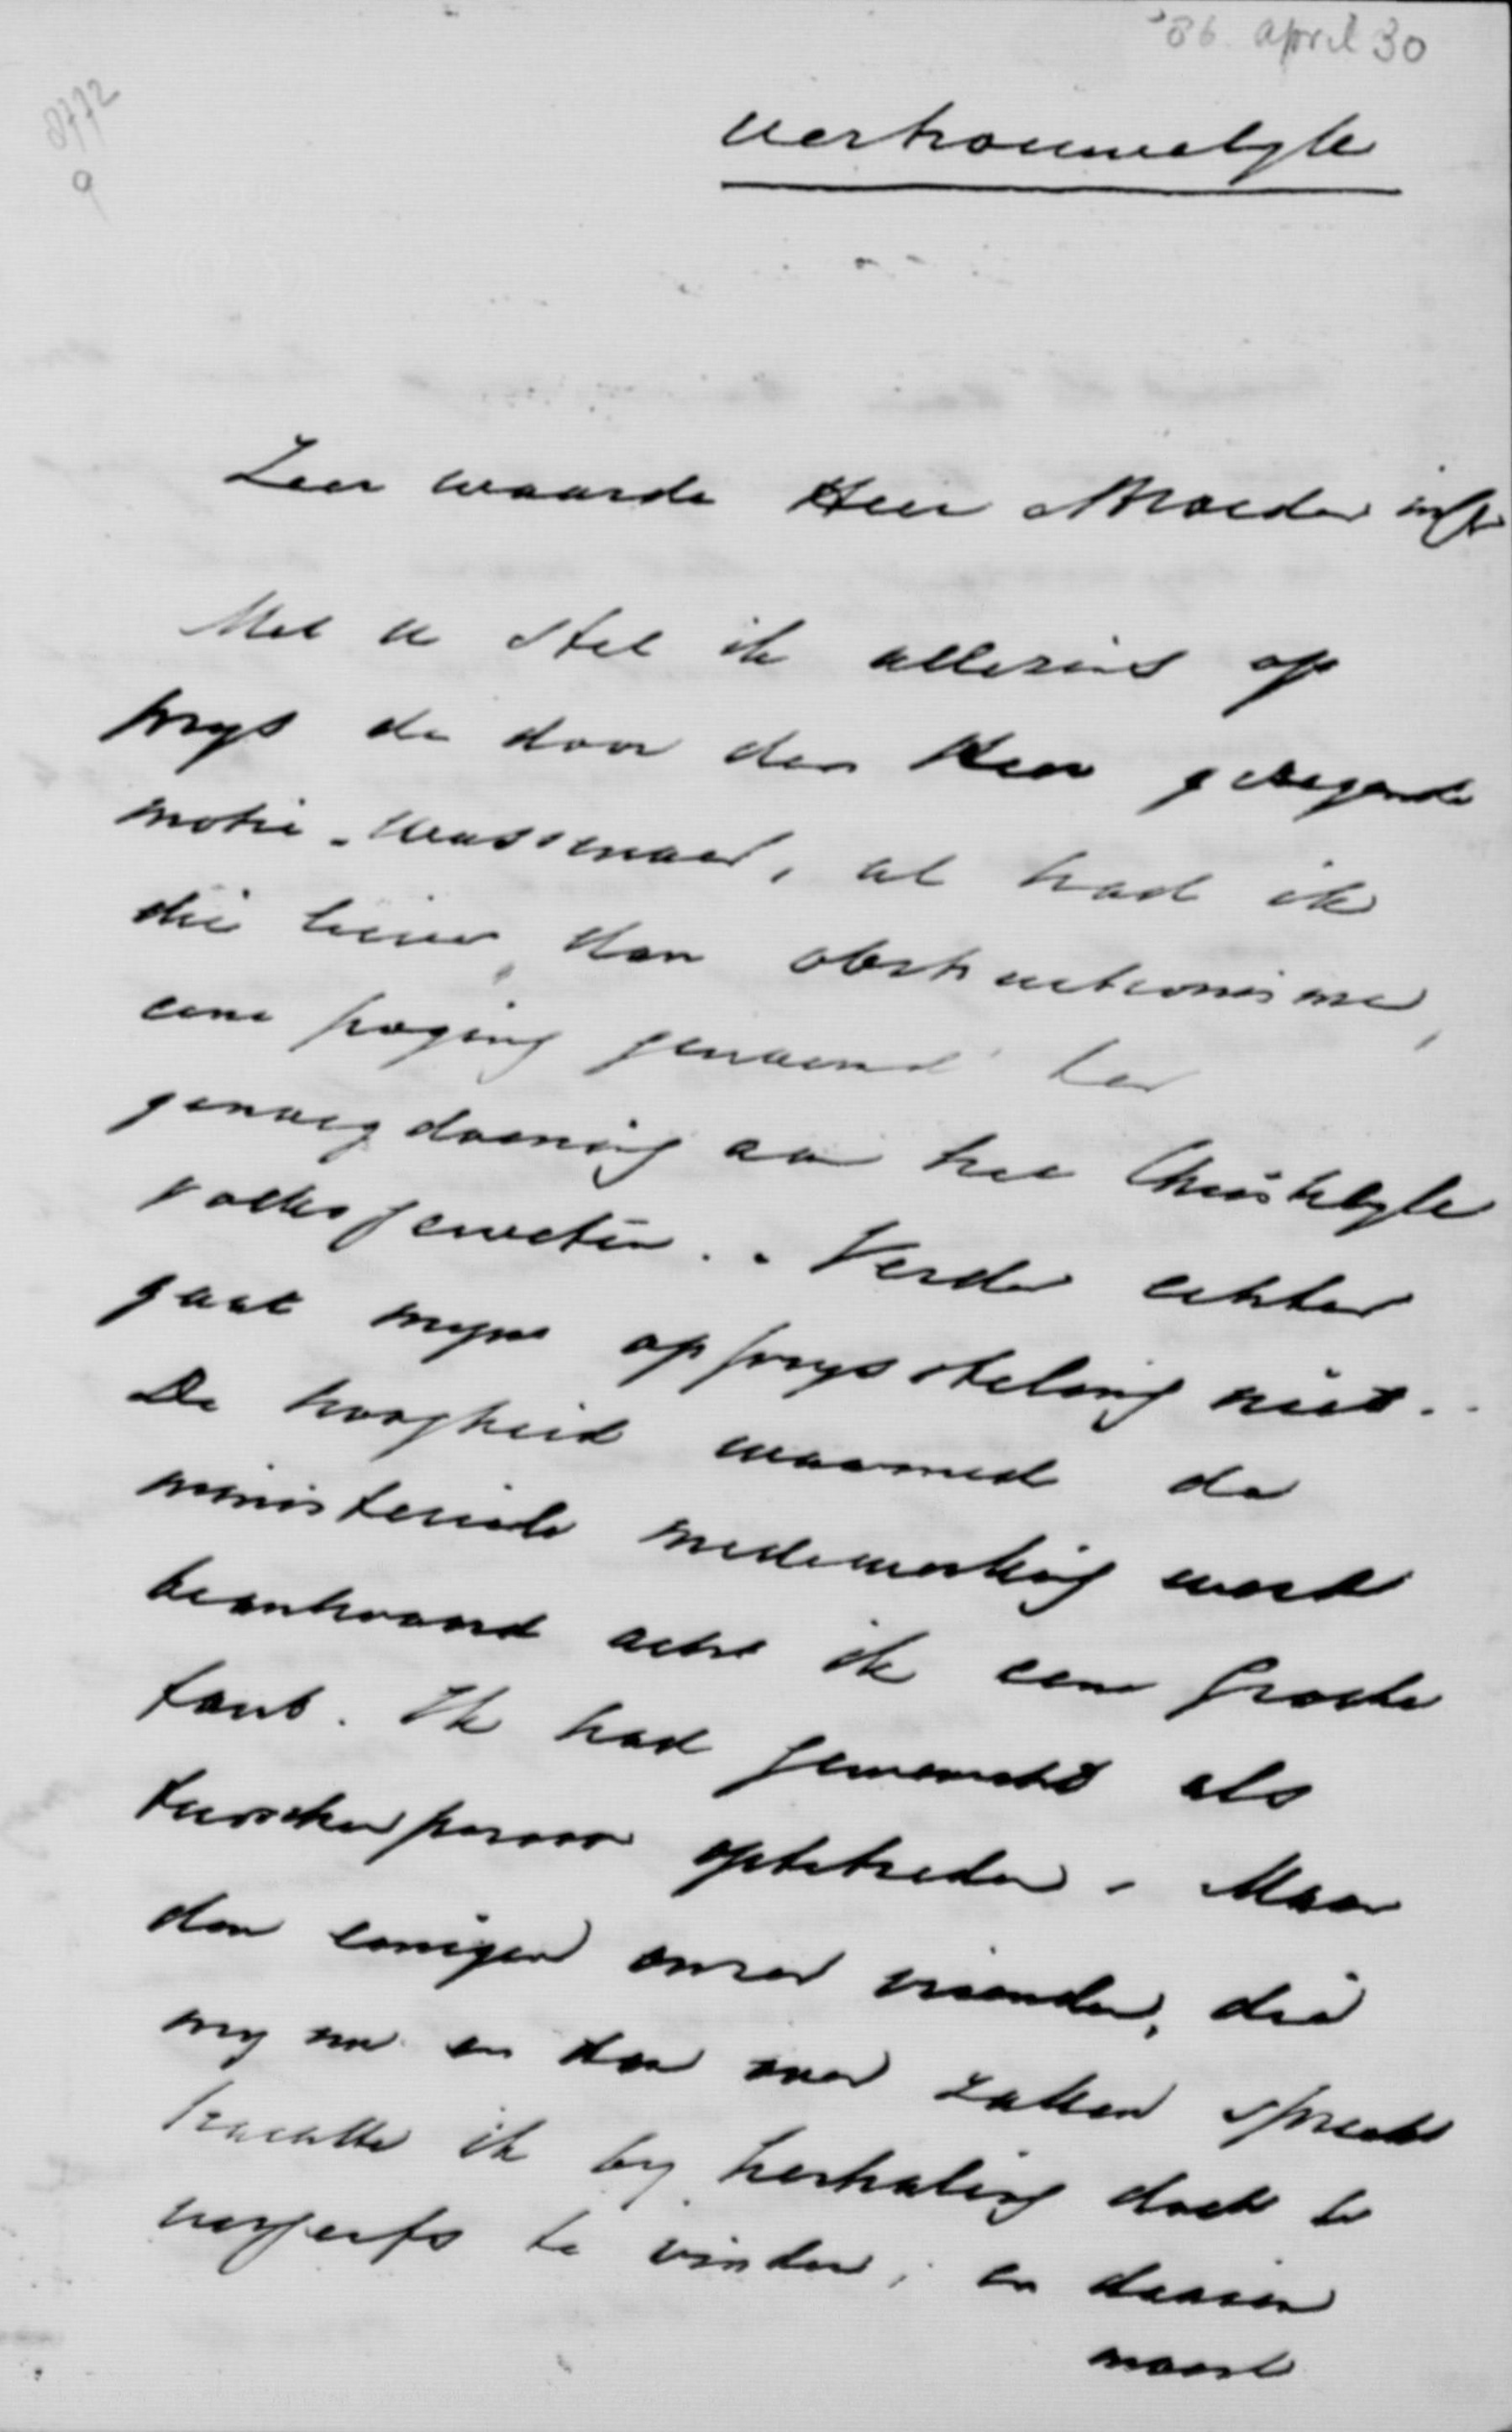 '86. april 30
8772
9
Vertrouwelyk
Zeer waarde Heer & Broeder in
Met U stel ik alleszins op
prys de door den Heer
motie-Wassenaar, al had ik
die liever, dan obstructionisme,
eene poging genoemd ter
genoegdoening aan het Christelyk
volksgeweten. - Verder echter
gaat myne opprysstelling niet. -
De hoogheid waarmede de
ministerieele medewerking werd
beantwoord acht ik een groote
fout. Ik had gewenscht als
tusschenpersoon optetreden. Maar
den eenigen onzer vrienden, die
my nu en dan over zaken spreekt
trachtte ik by herhaling doch te
vergeefs te vinden; en daarin
moest